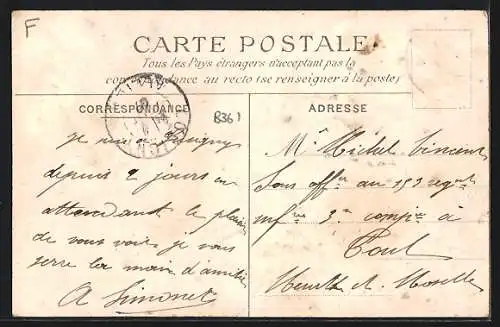 F
CARTE POSTALE
Tous les Pays étrangers n'acceptant pas la
correspondance au recto (se renseigner à la poste)
CORRESPONDANCE
8361
ADRESSE
je suis à
depuis 2 jours en
attendant le plaisir
de vous voir je vous
serre la main d'amitié
A Simonet
Mr Michel Vincent
Sous offer au 153 regnt
mfrie 3e compie à
Toul
Meurthe et Moselle